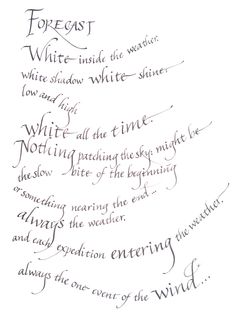 FORECAST
White inside the weather.
white shadow white shine
low and high
white all the time
Nothing patching the sky: might be
the slow bite of the beginning
or something nearing the end...
always the weather.
and each expedition entering the weather.
always the one event of the wind...